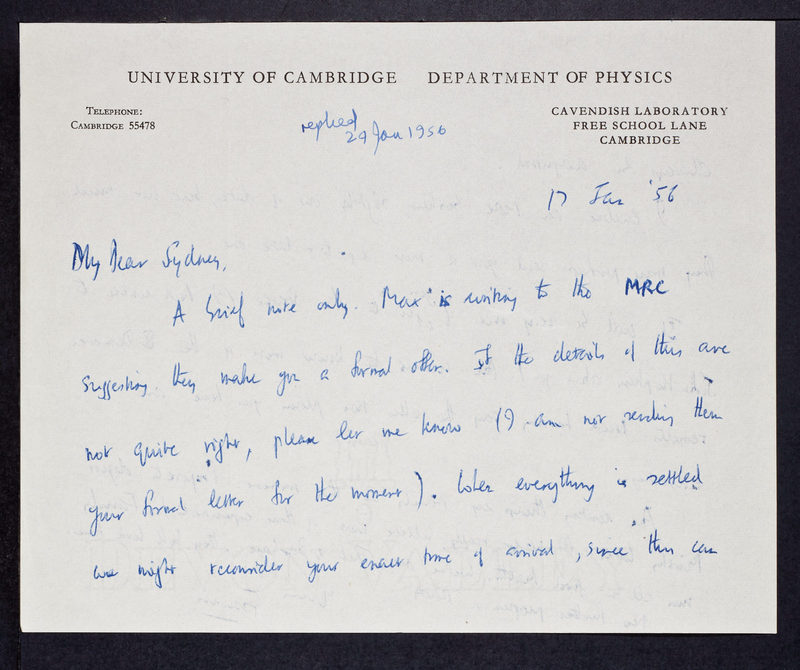 UNIVERSITY OF CAMBRIDGE DEPARTMENT OF PHYSICS
TELEPHONE:
CAMBRIDGE 55478
CAVENDISH LABORATORY
FREE SCHOOL LANE
CAMBRIDGE
replied
24 Jan 1956
17 Jan '56
My Dear Sydney,
A brief note only. Max is writing to the MRC
suggesting they make you a formal offer. If the details of this are
not quite right, please let me know (I am not sending them
your formal letter for the moment). When everything is settled
we might reconsider your exact time of arrival, since this can